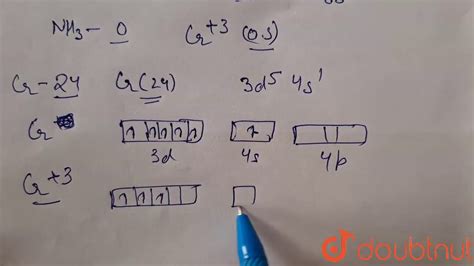 NH₃ - 0 Cr⁺³ (OS)
Cr - 24 Cr(24) 3d⁵ 4s¹
Cr 1 1 1 1 1
3d 4s 4p
Cr⁺³ 1 1 1
doubtnut